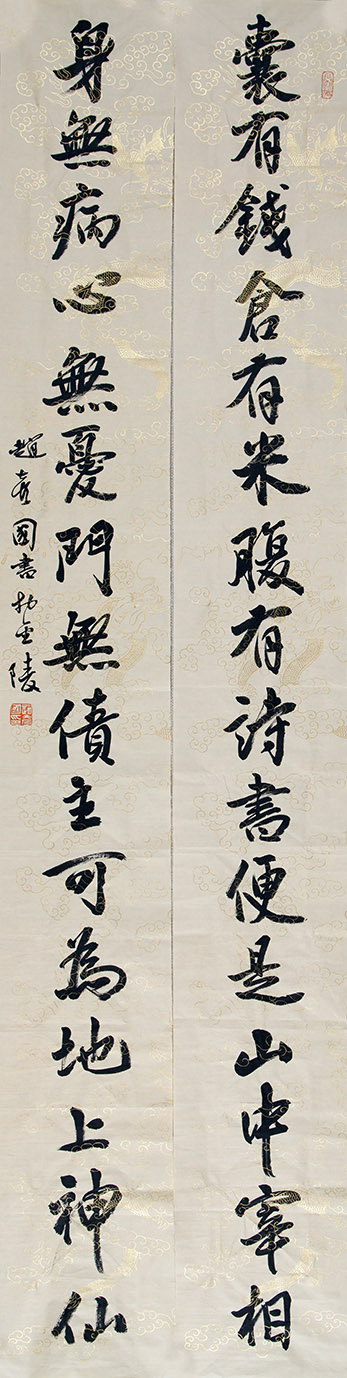 囊有錢倉有米腹有詩書便是山中宰相
身無病心無憂門無債主可為地上神仙
趙喜國書於金陵